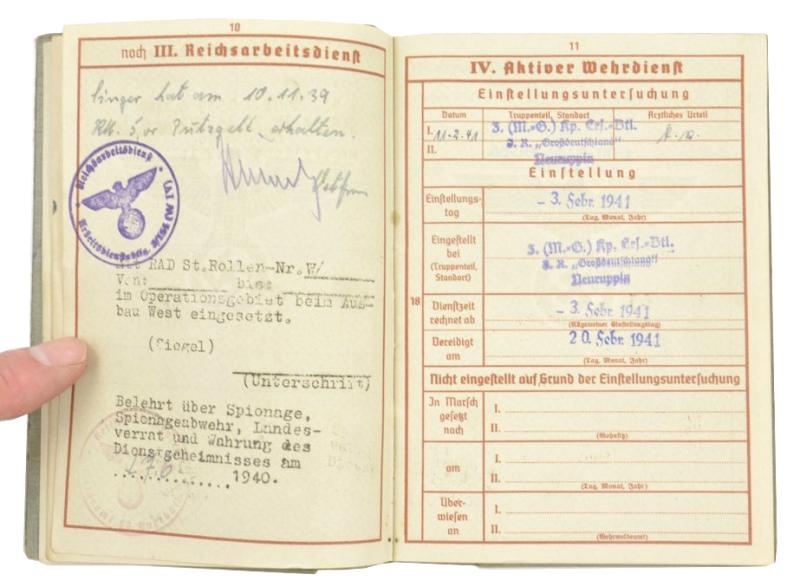 10
noch III. Reichsarbeitsdienst
hat am 10.11.39
Putzgeld erhalten.
Reichsarbeitsdienst
RAD St. Rollen-Nr. W/
Von: bis:
im Operationsgebiet beim Aus-
bau West eingesetzt.
(Siegel)
(Unterschrift)
Belehrt über Spionage,
Spionageabwehr, Landes-
verrat und Wahrung des
Dienstgeheimnisses am
17.6. 1940.
11
IV. Aktiver Wehrdienst
Einstellungsuntersuchung
Datum Truppenteil, Standort Ärztliches Urteil
I. 11.2.41 3. (M.-G.) Kp. Ers.-Btl.
II. J. R. „Großdeutschland"
Neuruppin
Einstellung
Einstellungs-
tag
- 3. Febr. 1941
(Tag, Monat, Jahr)
Eingestellt
bei
(Truppenteil,
Standort)
3. (M.-G.) Kp. Ers.-Btl.
J. R. „Großdeutschland"
Neuruppin
18
Dienstzeit
rechnet ab
- 3. Febr. 1941
(Allgemeiner Einstellungstag)
Vereidigt
am
20. Febr. 1941
(Tag, Monat, Jahr)
Nicht eingestellt auf Grund der Einstellungsuntersuchung
In Marsch
gesetzt
nach
I.
II.
(Wohnsitz)
am
I.
II.
(Tag, Monat, Jahr)
Über-
wiesen
an
I.
II.
(Wehrmeldeamt)